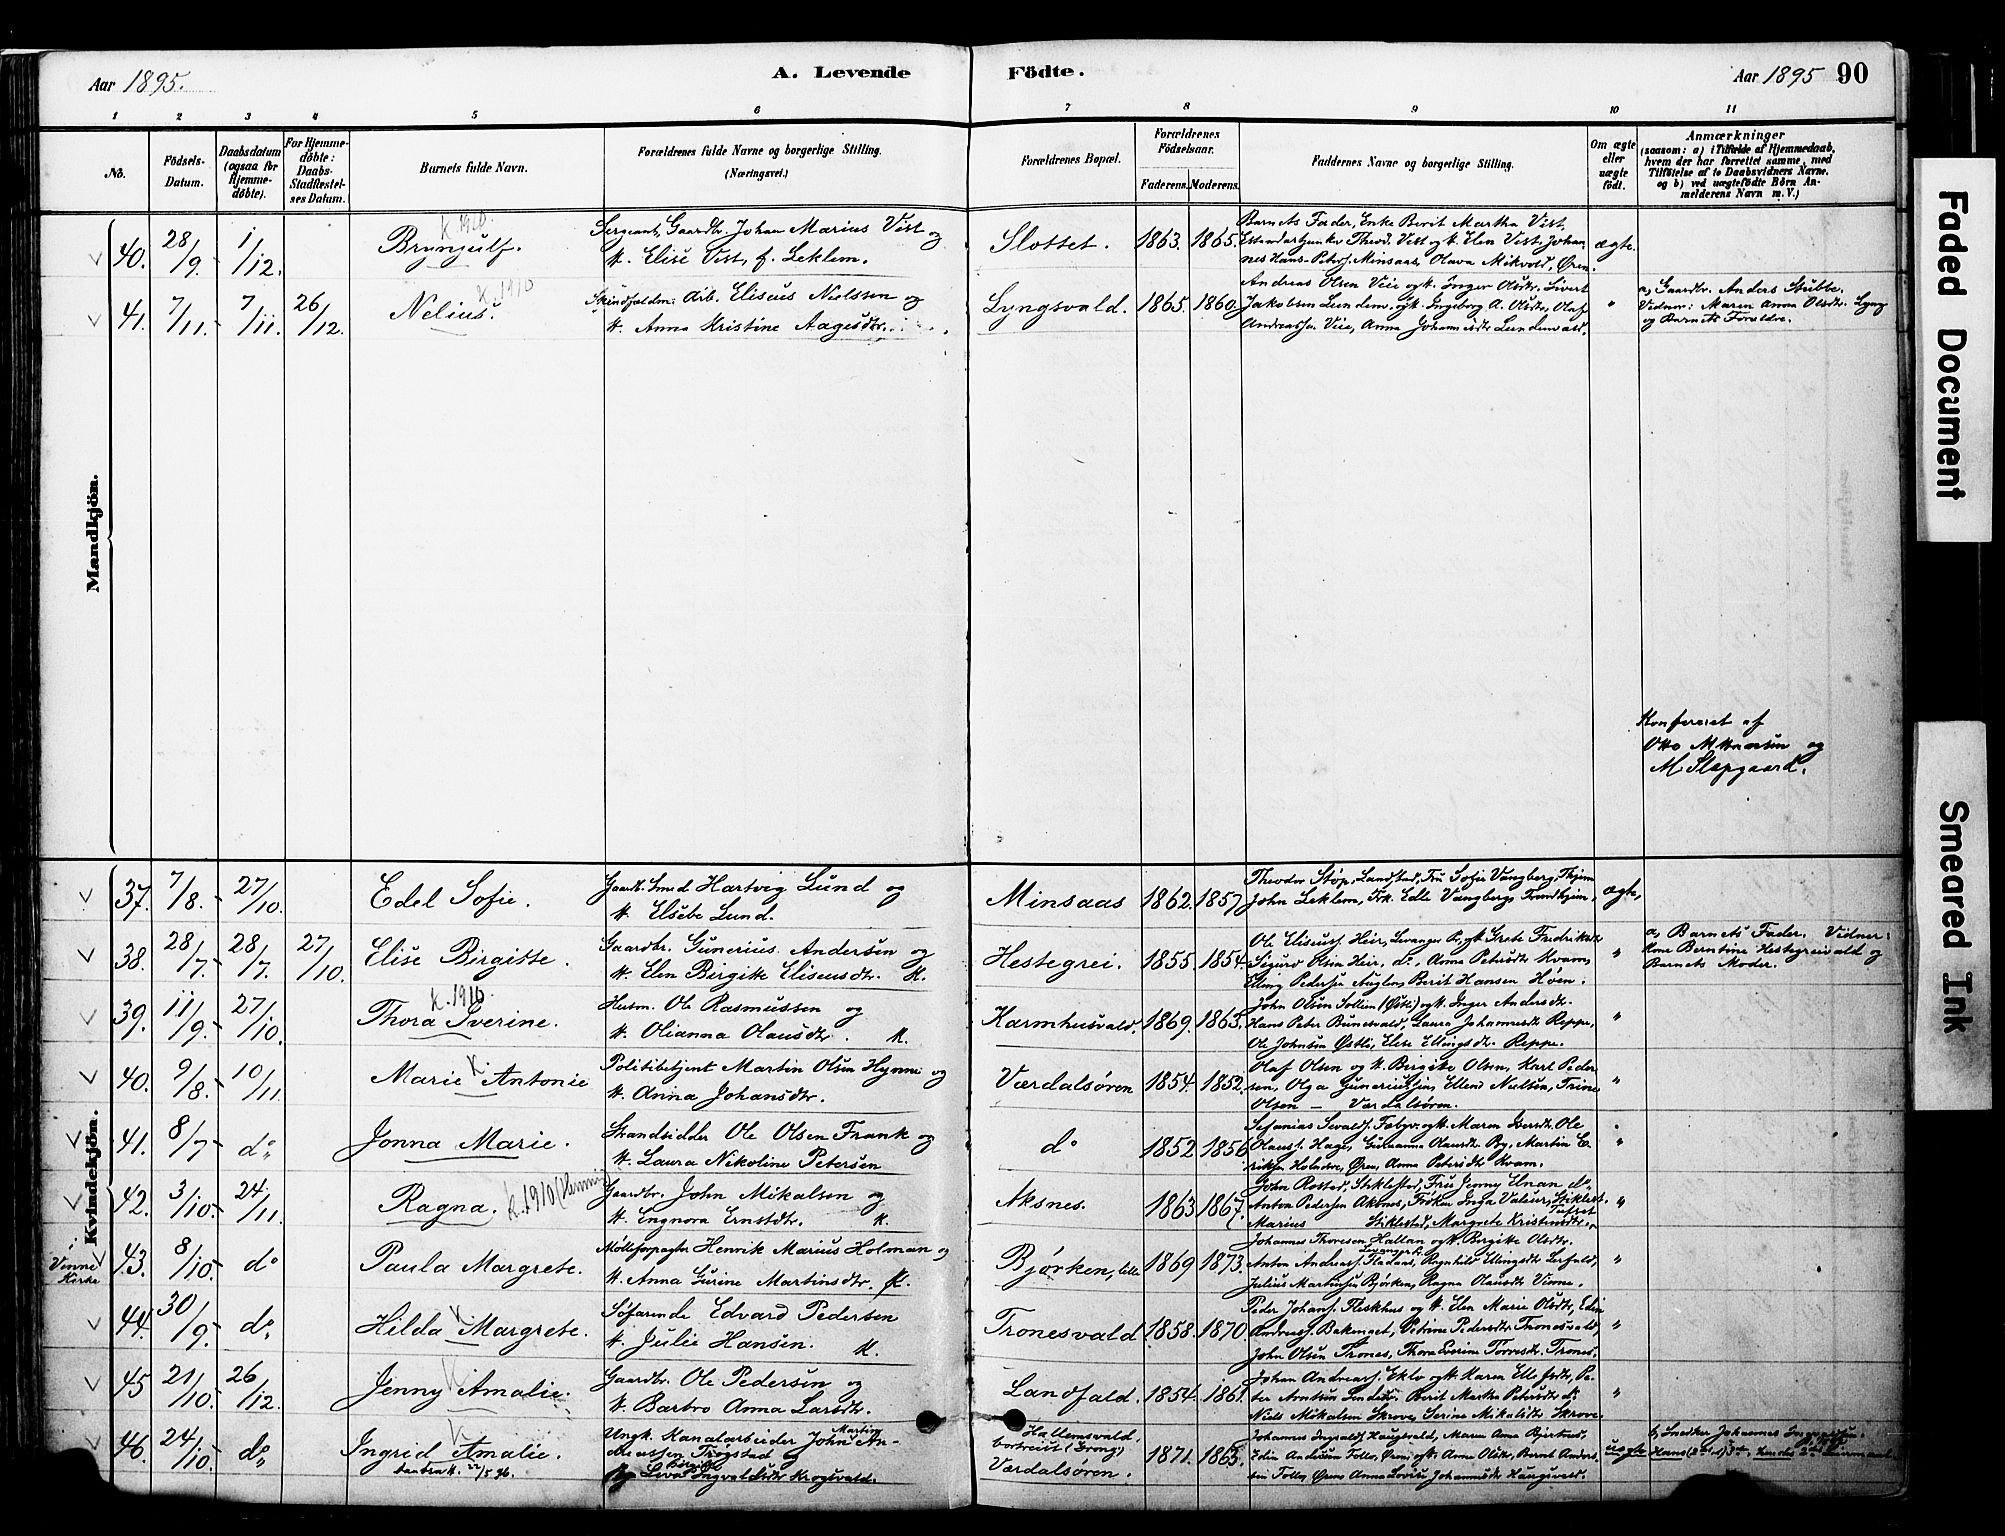 Aar 1895.
A. Levende Födte.
Aar 1895 90
1 2 3 4 5 6 7 8 9 10 11
No.
Födsels-
Datum.
Daabsdatum
(ogsaa for
Hjemme-
döbte).
For Hjemme-
døbte:
Daabs-
Stadfæstel-
ses Datum.
Barnets fulde Navn.
Forældrenes fulde Navne og borgerlige Stilling.
(Næringsvei.)
Forældrenes Bopæl.
Forældrenes
Födselsaar.
Faderens. Moderens.
Faddernes Navne og borgerlige Stilling.
Om ægte
eller
uægte
födt.
Anmærkninger
(saasom: a) i Tilfælde af Hjemmedaab,
hvem der har forrettet samme, med
Tilföielse af to Daabsvidners Navne.
og b) ved uægtefödte Börn An-
melderens Navn m. V.)
Mandkjön.
40. 28/9. 1/12. Brynjulf. K. 1910.
Sergeant, Gaardbr. Johan Marius Vist og
K. Elise Vist, f. Leklem.
Slottet. 1863. 1865.
Barnets Fader, Enke Berit Martha Vist,
Theod. Vist og K. Elen Vist, Johan
nes Hans Peters. Minsaas, Olava Mikvold, Øren.
ægte.
41. 7/11. 7/11. 26/12. Nelius. K. 1910
Arb. Eliseus Nielssen og
K. Anna Kristine Aagesdtr.
Lyngsvald. 1865. 1860.
Andreas Olsen Veie og K. Inger Olsdtr. Sivert
Jakobsen Lundem. og K. Ingeborg A. Olsdtr., Olaf
Andreass. Veie, Anna Johannesdtr Lundemvald.
"
a, Gaardbr. Anders Stubbe.
Vidner: Maren Anna Olsdtr. Lyng
og Barnets Forældre.
Konfereret af
og
M Slapgaard.
Kvindekjön.
37. 7/8. 27/10. Edel Sofie.
Gaardb. Smed Hartvig Lund og
K. Elsebe Lund.
Minsaas 1862. 1857.
Theodor Støp, Landstad, Fru Sofie Vangberg, Thjem
John Leklem, Frk. Edle Vangberg, Trondhjem.
ægte,
38. 28/7. 28/7. 27/10. Elise Birgitte.
Gaardbr. Gunerius Andersen og
K. Elen Birgitte Eliseusdtr. K.
Hestegrei. 1855. 1854.
Ole Eliseuss. Heir, Levanger P, og K. Grete Fredriksdtr
Sigurd Heir, do, Anna Petersdtr Kvam,
Elling Pedersen Auglen, Berit Hansen Høen.
"
a, Barnets Fader. Vidner:
Kone Berntine Hestegreivald og
Barnets Moder.
39. 11/9. 27/10. Thora Iverine. K. 1910.
Husm. Ole Rasmussen og
K. Olianna Olausdtr. K.
Karmhusvald. 1869. 1865.
John Olsen Sollien (Østli) og K. Inger Andersdtr.
Hans Peter Bunesvald, Laura Johannesdtr Reppe,
Ole Johnsen Østli, Elise Ellingsdtr. Reppe.
"
40. 9/8. 10/11. Marie Antonie K.
Politibetjent Martin Olsen Hynne og
K. Anna Johansdtr.
Værdalsøren 1854. 1852.
Olaf Olsen og K. Birgitte Olsen, Karl Peder
sen, Olga Elland Nielsen, Trine
Olsen — Værdalsøren.
"
41. 8/7. do. Jonna Marie.
Strandsidder Ole Olsen Frank og
K. Laura Nikoline Petersen
do 1852 1856
Sefanias Sevalds. Faby og K. Maren Iversdtr. Ole
Olauss. Hage, Gulianna Olausdtr By, Martin E.
riksen Holader, Øren, Anna Petersdtr Kvam.
"
42. 3/10. 24/11. Ragna. K. 1910 (Henning
Gaardbr. John Mikalsen og
K. Engnora Ernstdtr. K.
Aksnes. 1863 1867.
John Rostad, Stiklestad, Fru Jenny Elnan do,
Anton Pedersen Aksnes, Frøken Inga Valeur, Stiklest.
Marius Stiklestad, Margrete Kristensdtr.
"
Vinne
Kirke
43. 8/10. do Paula Margrete.
Mølleforpagter Henrik Marius Holman og
K. Anna Gurine Martinsdtr. K.
Bjørken, lille 1869 1873.
Johannes Thoresen Hallan og K. Birgitte Olsdtr.
Anton Andreass. Fladaas, Ragnhild Ellingsdtr Lerfald,
Julius Martinsen Bjørken, Ragna Olausdtr Vinne.
"
44. 30/9. do. Hilda Margrete. K
Søfarende Edvard Pedersen
K. Julie Hansen. K.
Tronesvald 1858. 1870.
Peder Johans. Fleskhus og K. Elen Marie Olsdtr, Edin
Andreass. Bakenget, Petrine Pedersdtr Tronesvald,
John Olsen Trones, Thora Everine Torresdtr. Trones.
"
45 21/10. 26/12. Jenny Amalie. K
Gaardbr. Ole Pedersen og
K. Barbro Anna Larsdtr.
Landfald. 1854. 1861.
Johan Andreass. Eklo og K. Karen Ellefsdtr, Pe-
ter Arntsen Berit Martha Petersdtr do
Niels Mikalsen Skrove, Serine Mikalsdtr Skrove.
"
46. 24/10. do. Ingrid Amalie. K
Ungk. Kanalarbeider John Martin An-
dreassen Trøgstad og
Birgitte Ingvaldsdtr Krogsvald.
Hallemsvald,
bortreist (Grong)
Værdalsøren. 1871. 1865.
Johannes Ingvalds. Haugsvald, Maren Anna Bjertnes,
Edin Andersen Folle, Øren og K. Anna Olsdtr, Bernt Anders-
sen Folle, Øren, Anna Lovise Johannesdtr Haugsvald.
uægte
b, Snedker Johannes